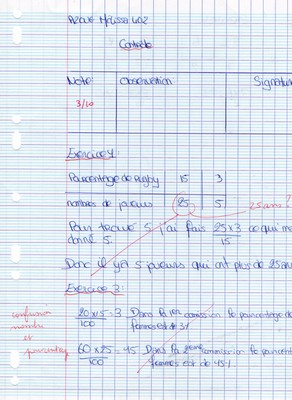 Mélissa 402
Contrôle
Note Observation Signature
3/10
Exercice 4:
Pourcentage de Rugby 15 3
nombres de joueurs 25 5 25 ans?
Pour trouvé 5 j'ai fais 25 x 3 / 15 ce qui me
donne 5.
Donc il y a 5 joueurs qui ont plus de 25 ans
Exercice 3:
confusion
nombre
et
pourcentage
20 x 15 / 100 = 3 Dans la 1ère commission le pourcentage de
femmes est de 3%
60 x 25 / 100 = 45 Dans la 2ème commission le pourcent
femmes est de 45%